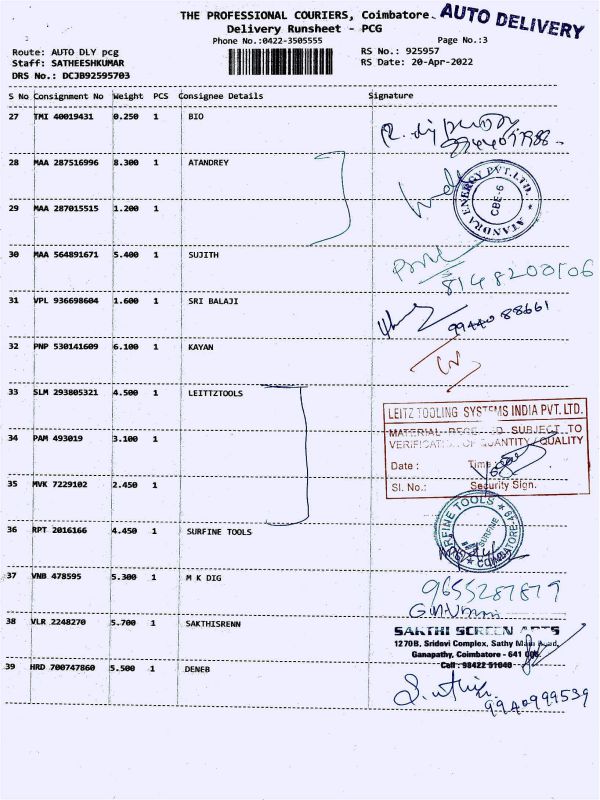 THE PROFESSIONAL COURIERS, Coimbatore.
AUTO DELIVERY
Delivery Runsheet - PCG
Phone No.:0422-3505555 Page No.:3
Route: AUTO DLY pcg RS No.: 925957
Staff: SATHEESHKUMAR RS Date: 20-Apr-2022
DRS No.: DCJB92595703
S No Consignment No Weight PCS Consignee Details Signature
27 TMI 40019431 0.250 1 BIO
28 MAA 287516996 8.300 1 ATANDREY
ATANDRA ENERGY PVT. LTD.
CBE-6
29 MAA 287015515 1.200 1
30 MAA 564891671 5.400 1 SUJITH
8148200106
31 VPL 936698604 1.600 1 SRI BALAJI
99440 88661
32 PNP 530141609 6.100 1 KAYAN
33 SLM 293805321 4.500 1 LEITTZTOOLS
LEITZ TOOLING SYSTEMS INDIA PVT. LTD.
MATERIAL SUBJECT TO
VERIFICATION OF QUANTITY / QUALITY
34 PAM 493019 3.100 1
Date : Time :
35 MVK 7229102 2.450 1
Sl. No.: Security Sign.
36 RPT 2016166 4.450 1 SURFINE TOOLS
SURFINE TOOLS
SURFINE
COIMBATORE-49
37 VNB 478595 5.300 1 M K DIG
9655287879
38 VLR 2248270 5.700 1 SAKTHISRENN
SAKTHI SCREEN ARTS
1270B, Sridevi Complex, Sathy Main Road,
Ganapathy, Coimbatore - 641 006.
Cell : 98422 51040
39 HRD 700747860 5.500 1 DENEB
9940999539